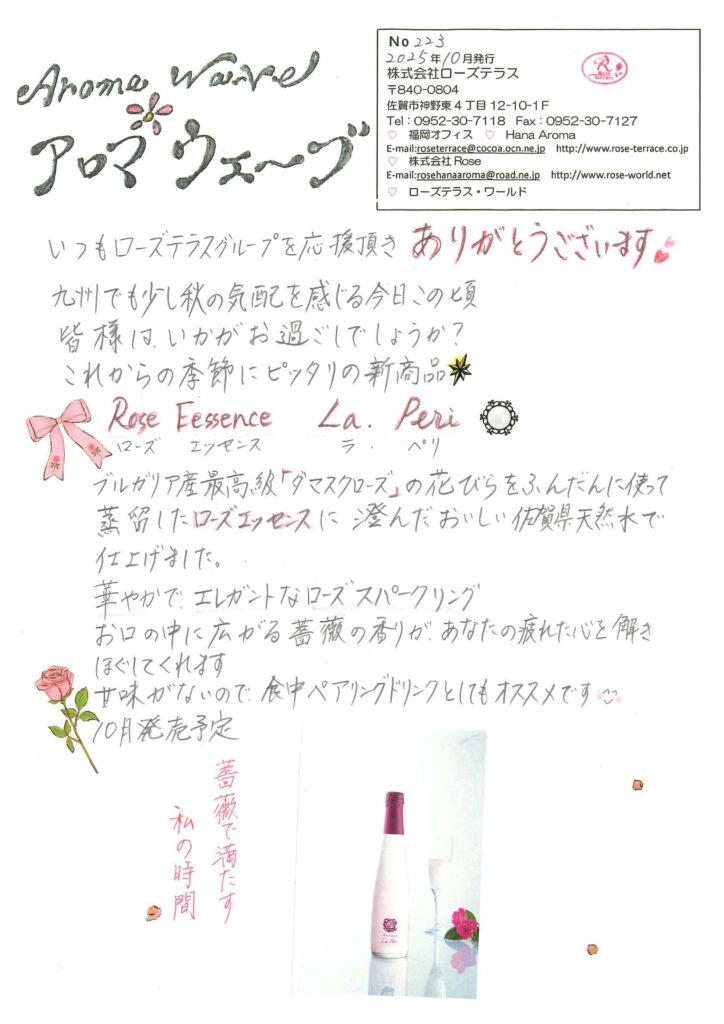 Arome Wave
アロマ ウェ〜ブ
No 223
2025年10月発行
株式会社ローズテラス
〒840-0804
佐賀市神野東4丁目12-10-1F
Tel：0952-30-7118 Fax：0952-30-7127
♡ 福岡オフィス ♡ Hana Aroma
E-mail:roseterrace@cocoa.ocn.ne.jp http://www.rose-terrace.co.jp
♡ 株式会社 Rose
E-mail:rosehanaaroma@road.ne.jp http://www.rose-world.net
♡ ローズテラス・ワールド
いつもローズテラスグループを応援頂き ありがとうございます
九州でも少し秋の気配を感じる今日この頃
皆様は、いかがお過ごしでしょうか？
これからの季節にピッタリの新商品
Rose Eessence La. Peri
ローズ エッセンス ラ・ペリ
ブルガリア産最高級「ダマスクローズ」の花びらをふんだんに使って
蒸留したローズエッセンスに 澄んだおいしい佐賀県天然水で
仕上げました。
華やかで、エレガントなローズスパークリング
お口の中に広がる薔薇の香りが、あなたの疲れた心を解き
ほぐしてくれます
甘味がないので、食中ペアリングドリンクとしてもオススメです
10月発売予定
薔薇で満たす
私の時間
La Peri